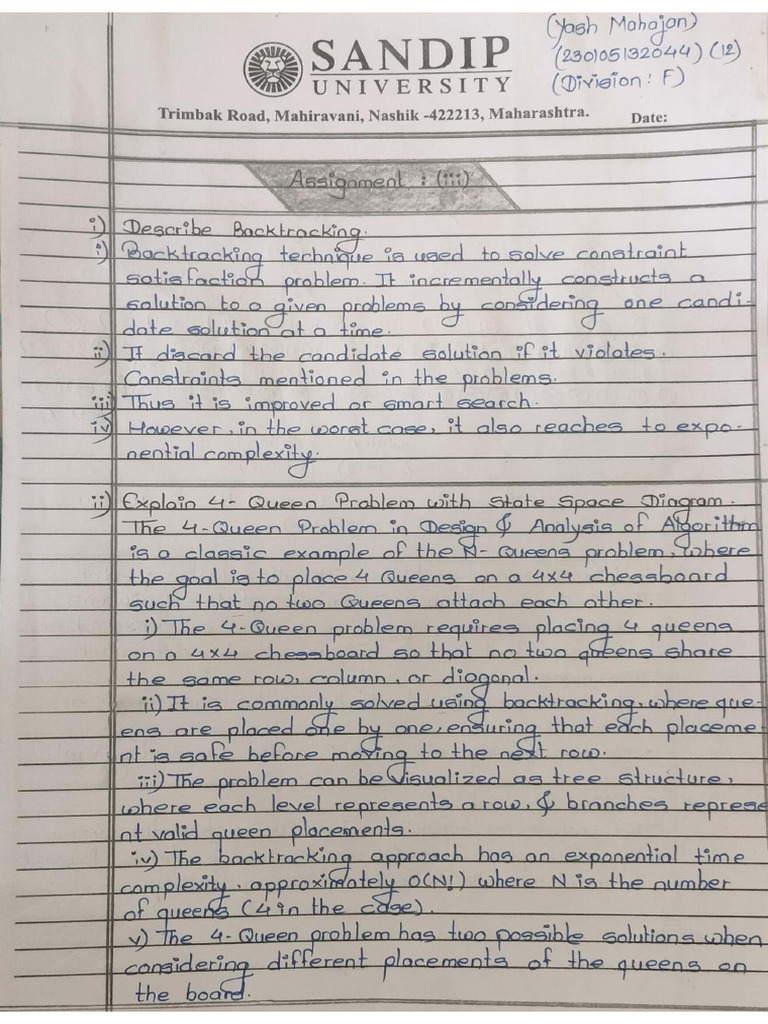 (Yash Mahajan)
(230105132044) (12)
(Division : F)
SANDIP
UNIVERSITY
Trimbak Road, Mahiravani, Nashik -422213, Maharashtra.
Date:
Assignment : (iii)
i) Describe Backtracking.
i) Backtracking technique is used to solve constraint
satisfaction problem. It incrementally constructs a
solution to a given problems by considering one candi-
date solution at a time.
ii) It discard the candidate solution if it violates.
Constraints mentioned in the problems.
iii) Thus it is improved or smart search.
iv) However, in the worst case, it also reaches to expo-
nential complexity.
ii) Explain 4- Queen Problem with State Space Diagram.
The 4-Queen Problem in Design & Analysis of Algorithm
is a classic example of the N- Queens problem, where
the goal is to place 4 Queens on a 4x4 chessboard
such that no two Queens attach each other.
i) The 4-Queen problem requires placing 4 queens
on a 4x4 chessboard so that no two queens share
the same row, column, or diagonal.
ii) It is commonly solved using backtracking, where que-
ens are placed one by one, ensuring that each placeme-
nt is safe before moving to the next row.
iii) The problem can be visualized as tree structure,
where each level represents a row, & branches represe
nt valid queen placements.
iv) The backtracking approach has an exponential time
complexity, approximately O(N!) where N is the number
of queens (4 in the case).
v) The 4-Queen problem has two possible solutions when
considering different placements of the queens on
the board.